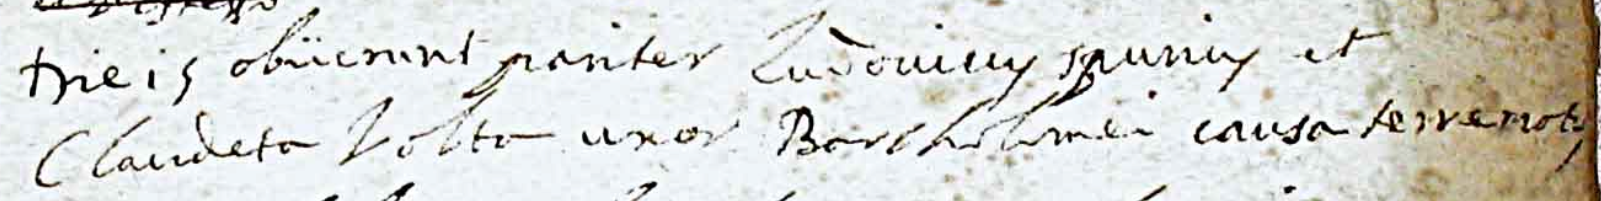 Die 15 obiierunt pariter Ludovicus spurius et
Claudeta Volta uxor Bartholomei causa terremotus